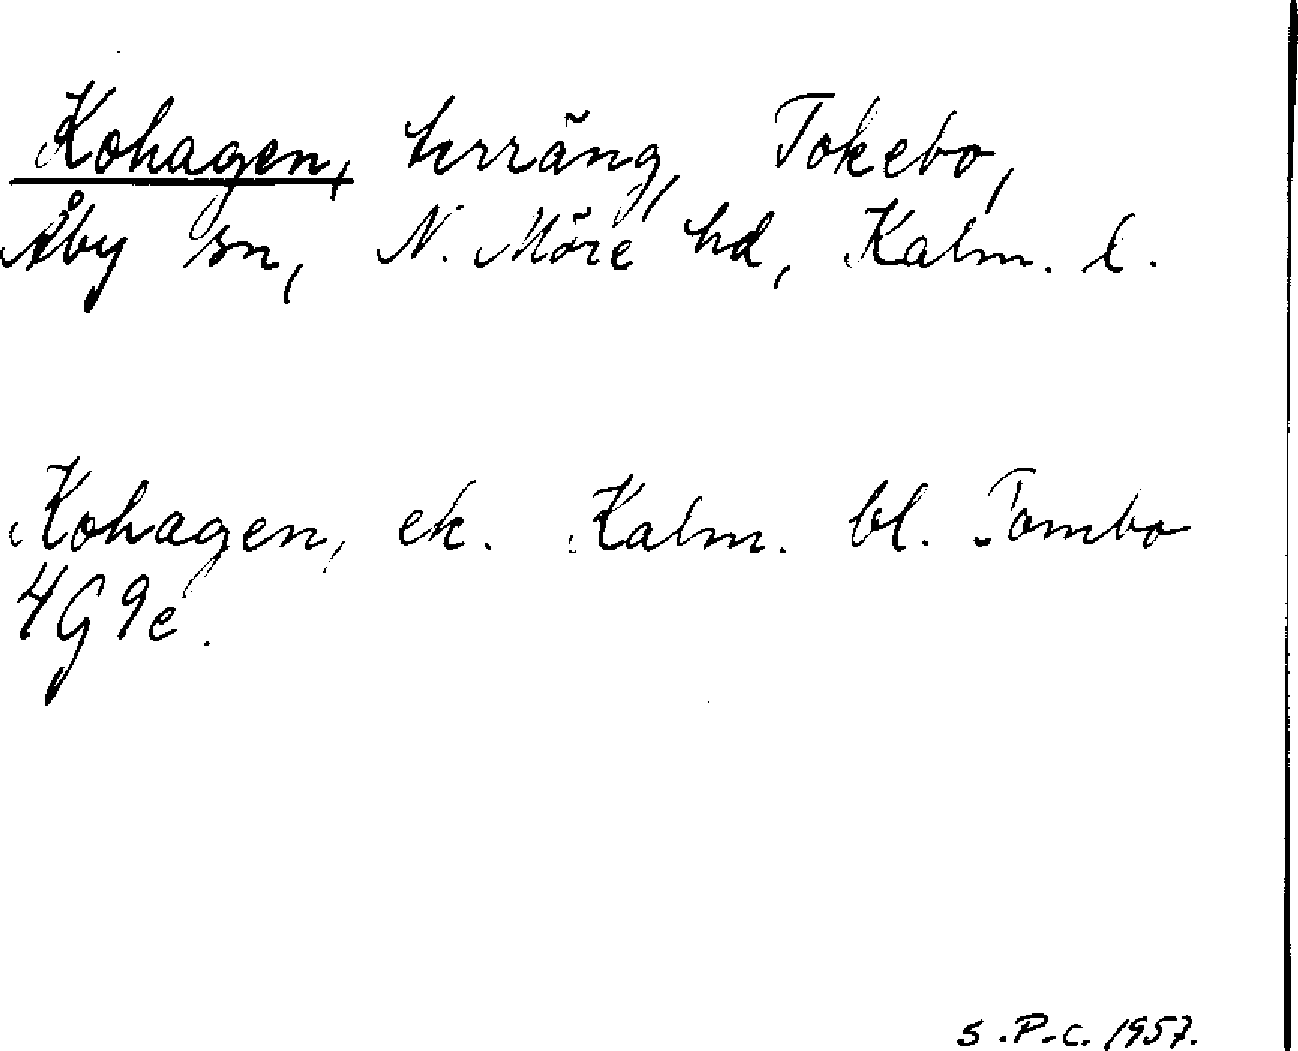 Kohagen, terräng, Tokebo,
Åby sn, N. Möre hd, Kalm. l.
Kohagen, ek. Kalm. bl. Tombo
4G9e.
S.P.C. 1957.